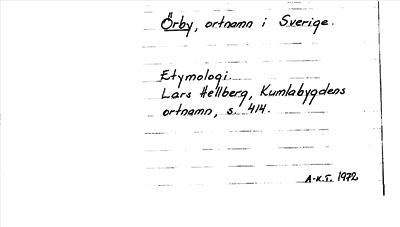 Örby, ortnamn i Sverige.
Etymologi.
Lars Hellberg, Kumlabygdens
ortnamn, s. 414.
A-K.T. 1972